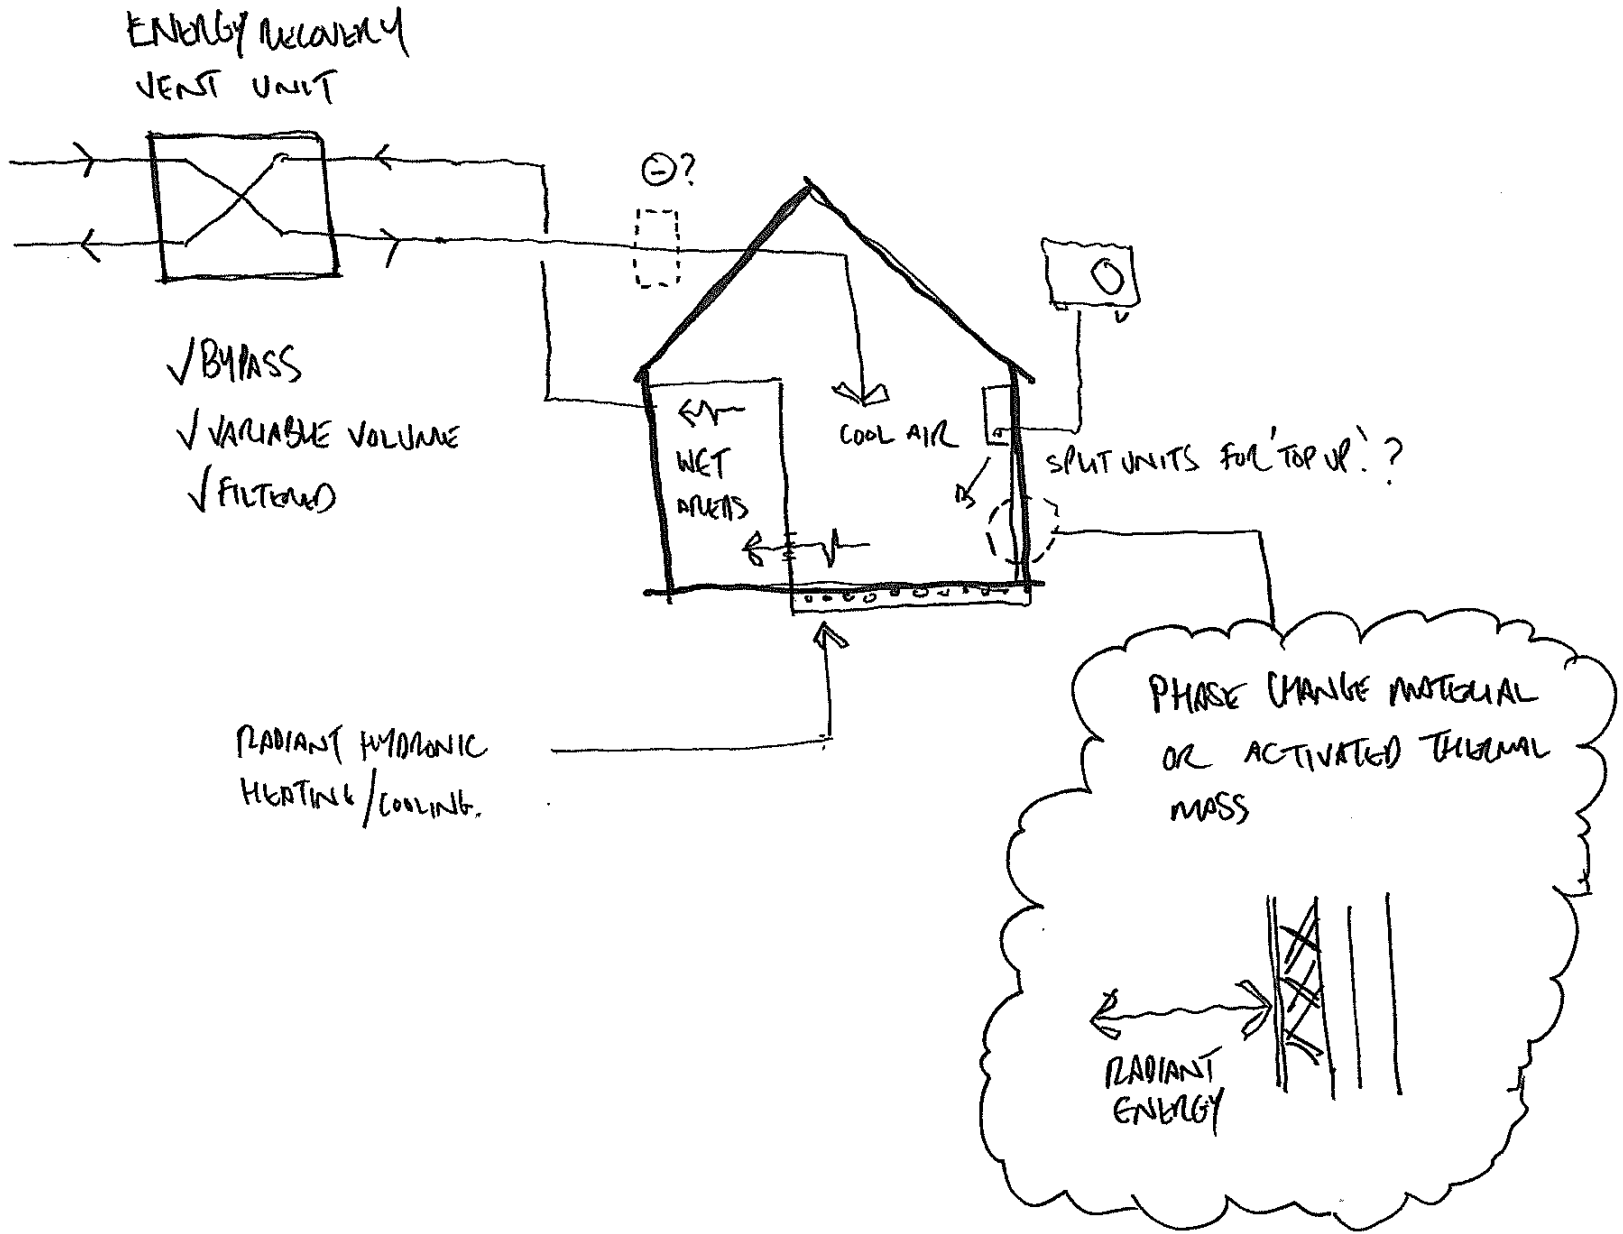 ENERGY RECOVERY
VENT UNIT
√ BYPASS
√ VARIABLE VOLUME
√ FILTERED
⊖?
COOL AIR
WET
AREAS
SPLIT UNITS FOR 'TOP UP'?
RADIANT HYDRONIC
HEATING/COOLING.
PHASE CHANGE MATERIAL
OR ACTIVATED THERMAL
MASS
RADIANT
ENERGY